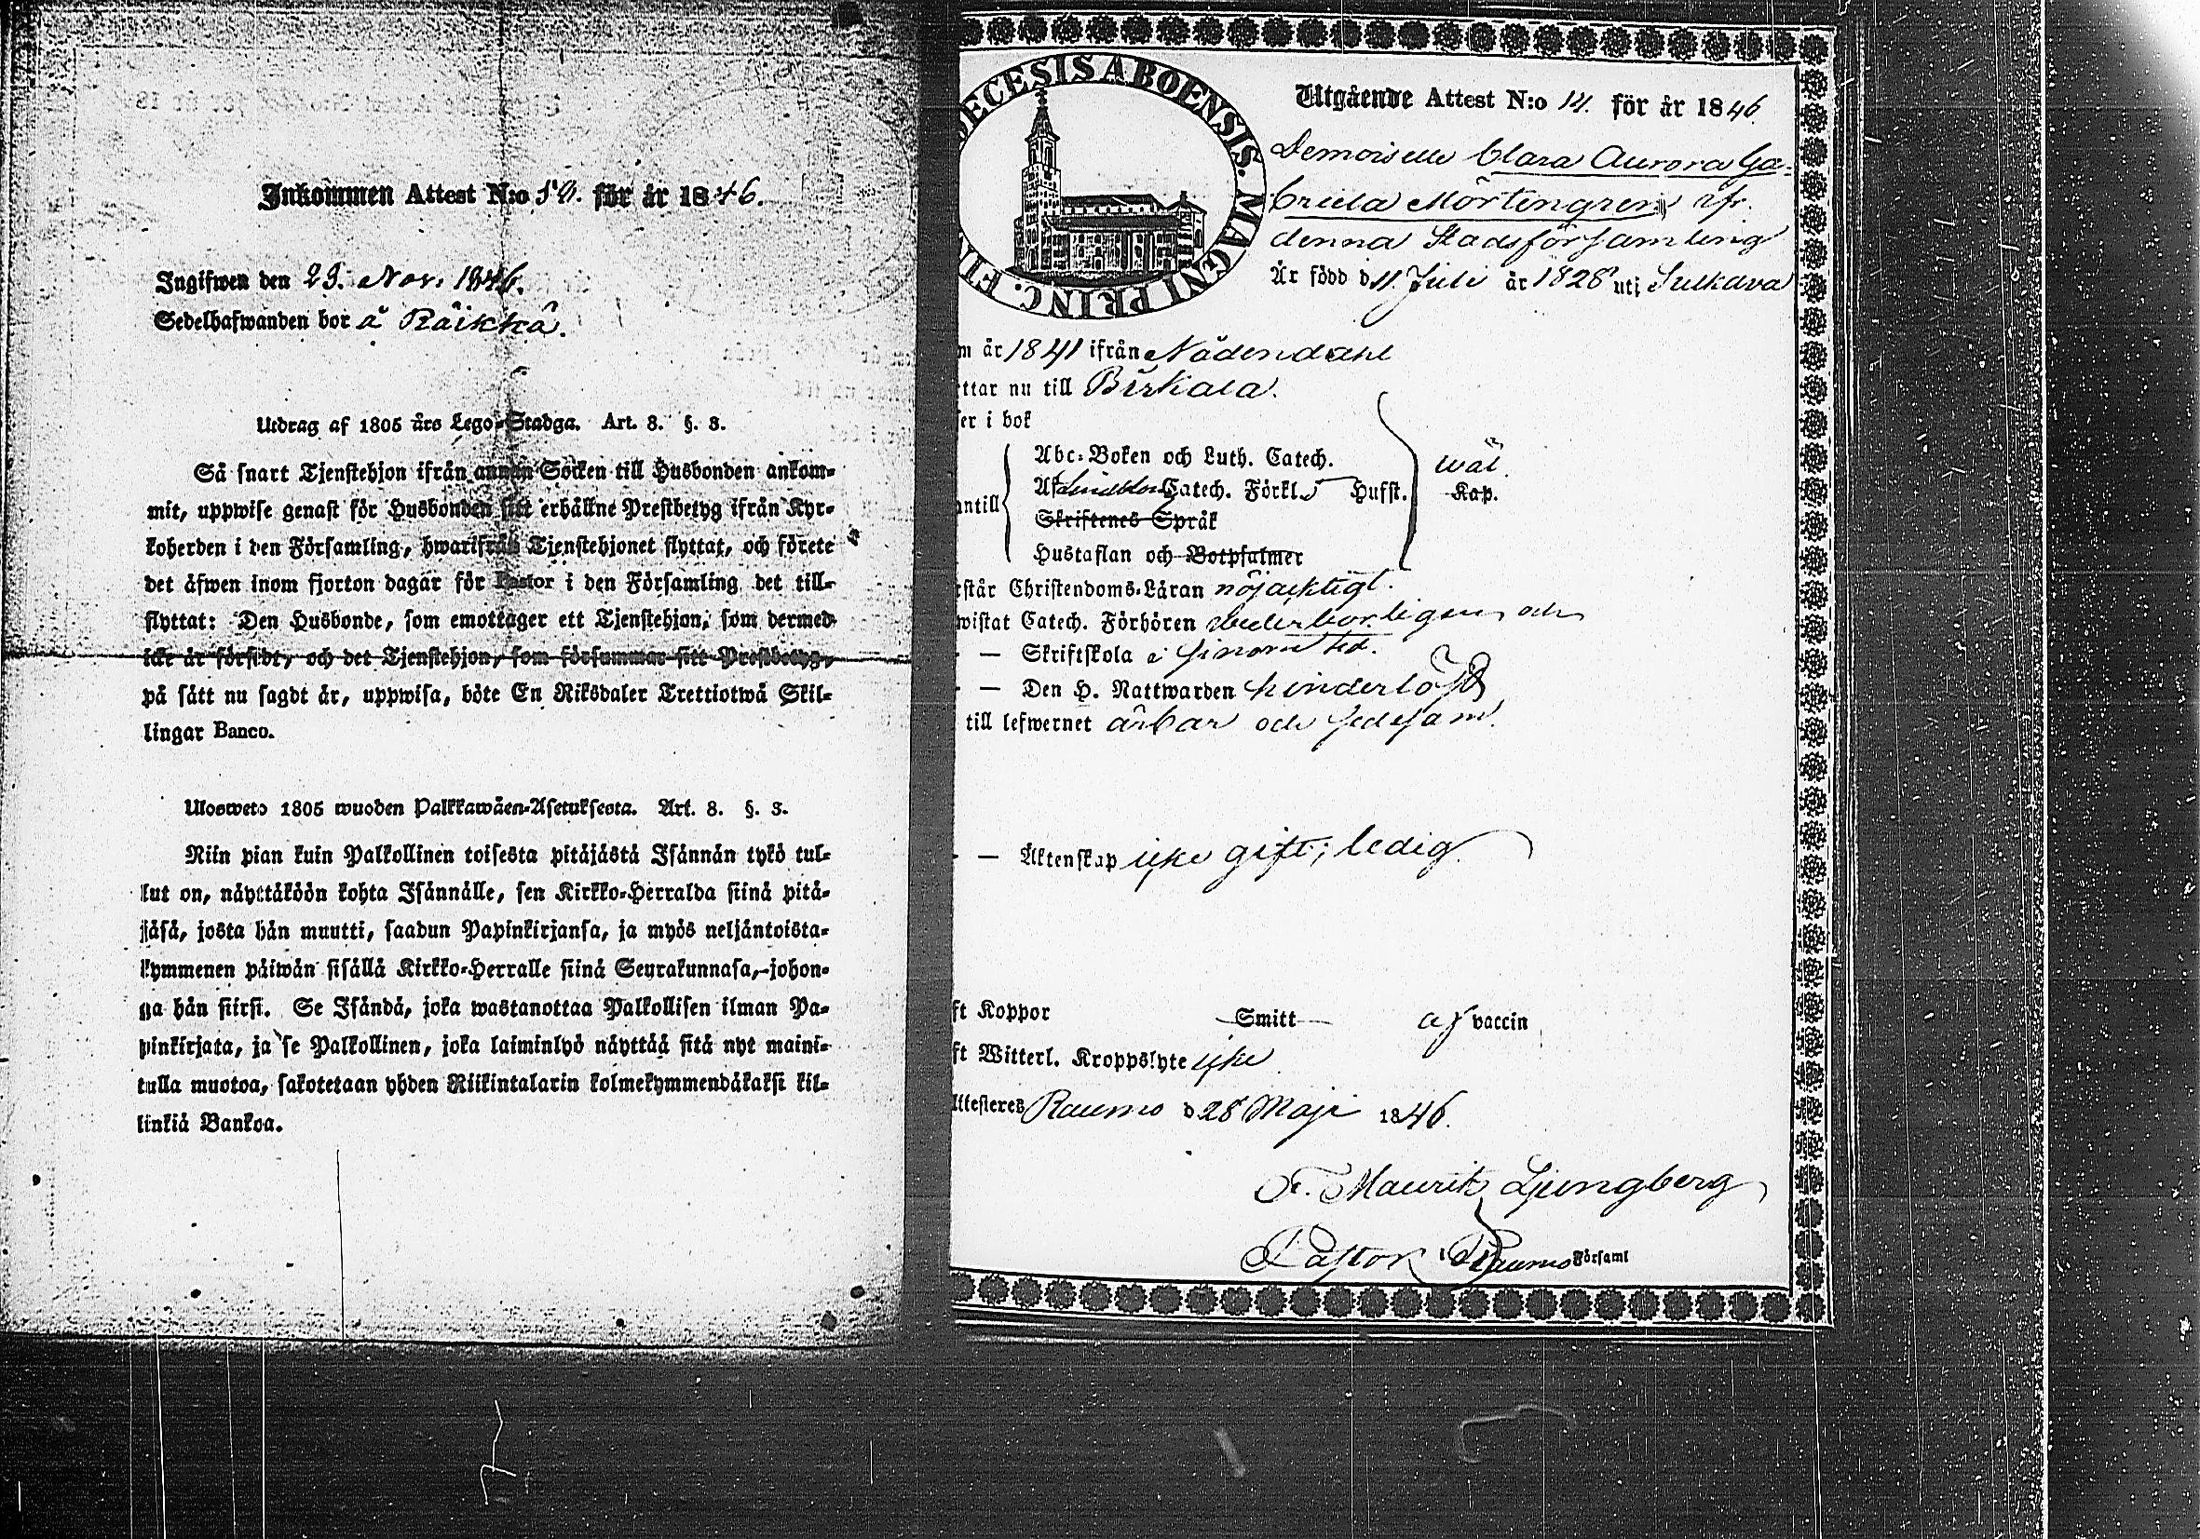 Inkommen Attest N:o 59. för år 1846.
Ingifwen den 23. Nov. 1846.
Sedelhafwanden bor å Räikkä.
Utdrag af 1805 års Lego-Stadga. Art. 8. §. 3.
Så snart Tjenstehjon ifrån annan Socken till Husbonden ankom-
mit, uppwise genast för Husbonden sitt erhållne Prestbetyg ifrån Kyr-
koherden i den Församling, hwarifrån Tjenstehjonet flyttat, och förete
det äfwen inom fjorton dagar för Pastor i den Församling det till-
flyttat: Den Husbonde, som emottager ett Tjenstehjon, som dermed
icke är försedt, och det Tjenstehjon, som försummar sitt Prestbetyg,
på sätt nu sagdt är, uppwisa, böte En Riksdaler Trettiotwå Skil-
lingar Banco.
Ulosweto 1805 wuoden Palkkawäen-Asetuksesta. Art. 8. §. 3.
Niin pian kuin Palkollinen toisesta pitäjästä Isännän tykö tul-
lut on, näyttäköön kohta Isännälle, sen Kirkko-Herralda siinä pitä-
jäsä, josta hän muutti, saadun Papinkirjansa, ja myös neljäntoista-
kymmenen päiwän sisällä Kirkko-Herralle siinä Seurakunnasa, johon-
ga hän siirsi. Se Isändä, joka wastanottaa Palkollisen ilman Pa-
pinkirjata, ja se Palkollinen, joka laiminlyö näyttää sitä nyt maini-
tulla muotoa, sakotetaan yhden Riikintalarin kolmekymmendäkaksi kil-
linkiä Bankoa.
ECESIS ABOENSIS. MAGNI PRINC. FI
Utgående Attest N:o 14. för år 1846.
Demoiselle Clara Aurora Ga-
briela Mörtengren, ifr.
denna Stadsförsamling
Är född d. 11 Juli år 1828 uti Sulkava
m år 1841 ifrån Nådendahl
ttar nu till Birkala.
er i bok
Abc-Boken och Luth. Catech.
wäl.
Af Lindblom Catech. Förkl. Husst. Kap.
antill
Skriftenes Språk
Hustaflan och Botpsalmer
rstår Christendoms-Läran nöjacktigt.
wistat Catech. Förhören behörligen och
— Skriftskola
— Den H. Nattwarden hinderlös
till lefwernet ärbar och sedesam.
— Äktenskap icke gift; ledig.
ft Koppor Smitt af vaccin
ft Witterl. Kroppslyte icke
Attesteres Raumo d 28 Maji 1846.
Fr. Mauritz Ljungberg
Pastor i Raumo Församl